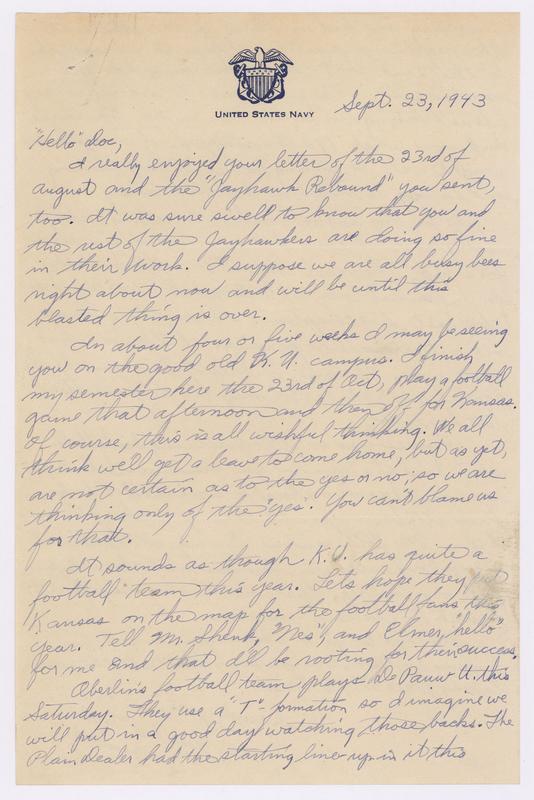 UNITED STATES NAVY
Sept. 23, 1943
"Hello" Doc,
I really enjoyed your letter of the 23rd of
august and the "Jayhawk Rebound" you sent,
too. It was sure swell to know that you and
the rest of the Jayhawkers are doing so fine
in their work. I suppose we are all busy bees
right about now and will be until this
blasted thing is over.
In about four or five weeks I may be seeing
you on the good old K. U. campus. I finish
my semester here the 23rd of Oct, play a football
game that afternoon and then off for Kansas.
Of course, this is all wishful thinking. We all
think we'll get a leave to come home, but as yet,
are not certain as to the yes or no; so we are
thinking only of the "yes". You can't blame us
for that.
It sounds as though K.U. has quite a
football team this year. Lets hope they put
Kansas on the map for the football fans this
year. Tell Mr. Shenk, "Nes", and Elmer, "hello"
for me and that I'll be rooting for their success.
Oberlin's football team plays De Pauw U. this
Saturday. They use a "T" formation so I imagine we
will put in a good day watching those backs. The
Plain Dealer had the starting line-up in it this